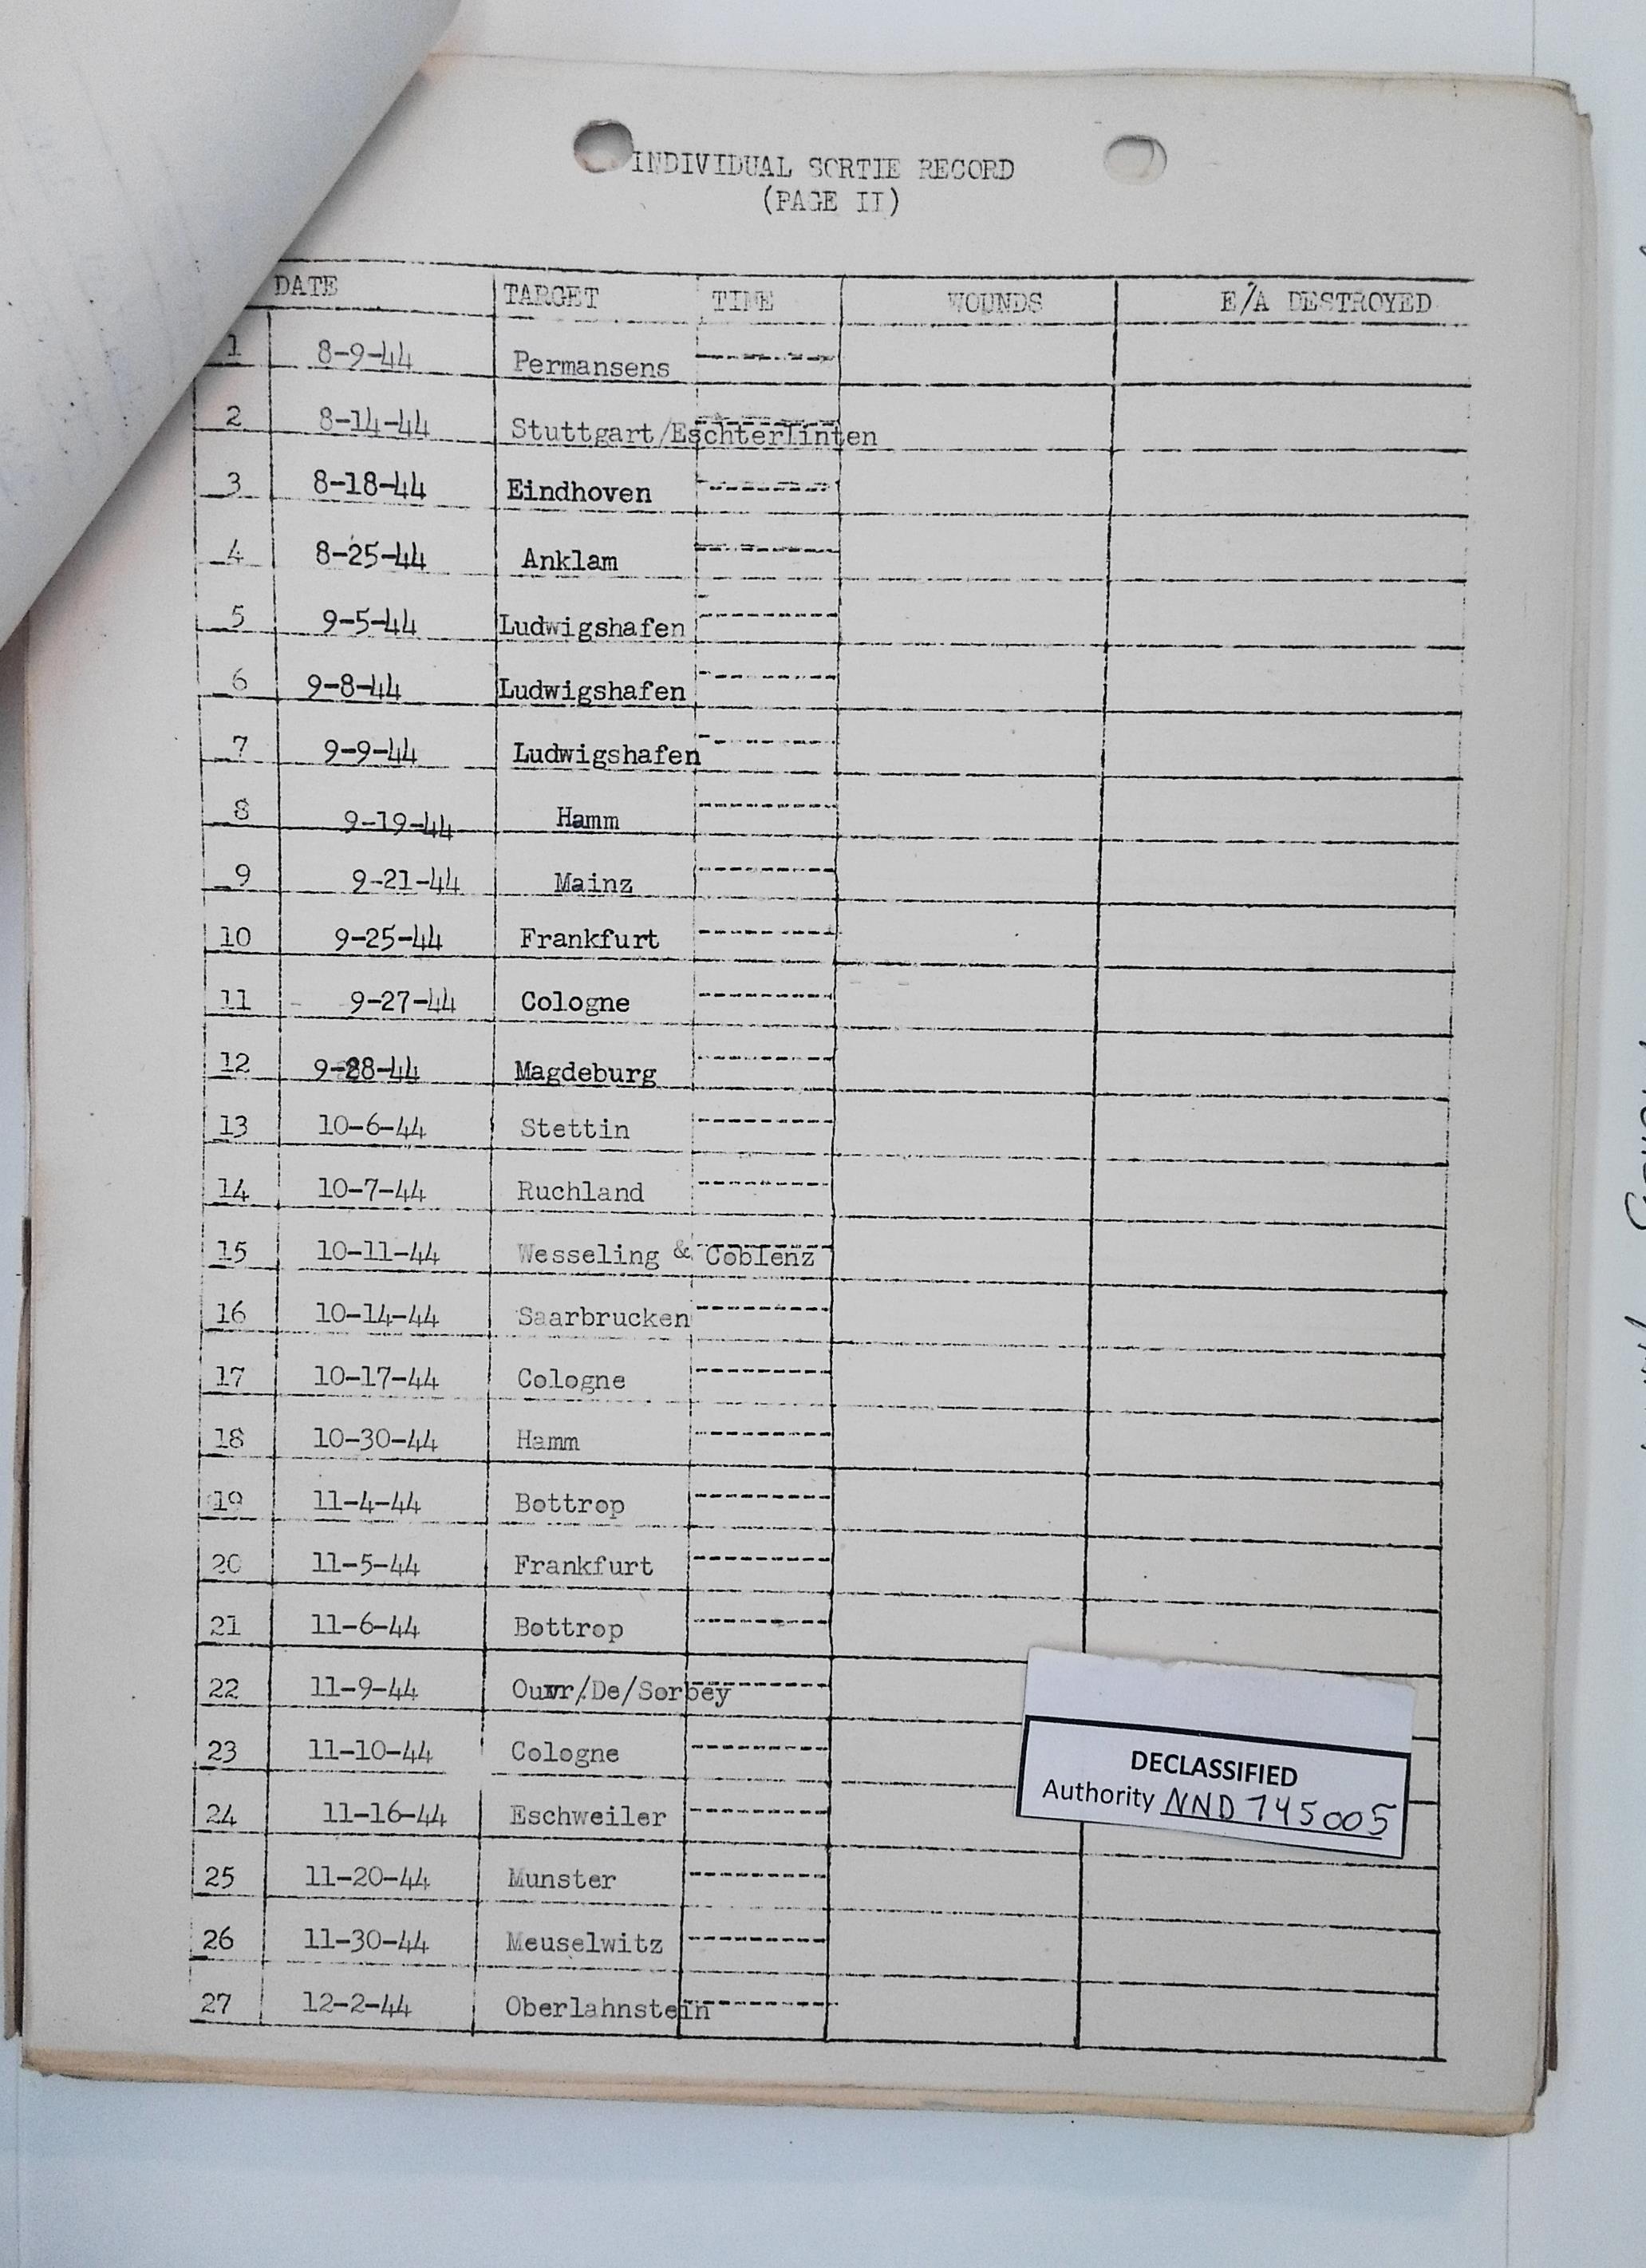 INDIVIDUAL SORTIE RECORD
(PAGE II)
DATE TARGET TIME WOUNDS E/A DESTROYED
1 8-9-44 Permansens
2 8-14-44 Stuttgart/Eschterlinten
3 8-18-44 Eindhoven
4 8-25-44 Anklam
5 9-5-44 Ludwigshafen
6 9-8-44 Ludwigshafen
7 9-9-44 Ludwigshafen
8 9-19-44 Hamm
9 9-21-44 Mainz
10 9-25-44 Frankfurt
11 9-27-44 Cologne
12 9-28-44 Magdeburg
13 10-6-44 Stettin
14 10-7-44 Ruchland
15 10-11-44 Wesseling & Coblenz
16 10-14-44 Saarbrucken
17 10-17-44 Cologne
18 10-30-44 Hamm
19 11-4-44 Bottrop
20 11-5-44 Frankfurt
21 11-6-44 Bottrop
22 11-9-44 Ouvr/De/Sorbey
23 11-10-44 Cologne
24 11-16-44 Eschweiler
25 11-20-44 Munster
26 11-30-44 Meuselwitz
27 12-2-44 Oberlahnstein
DECLASSIFIED
Authority NND 745005